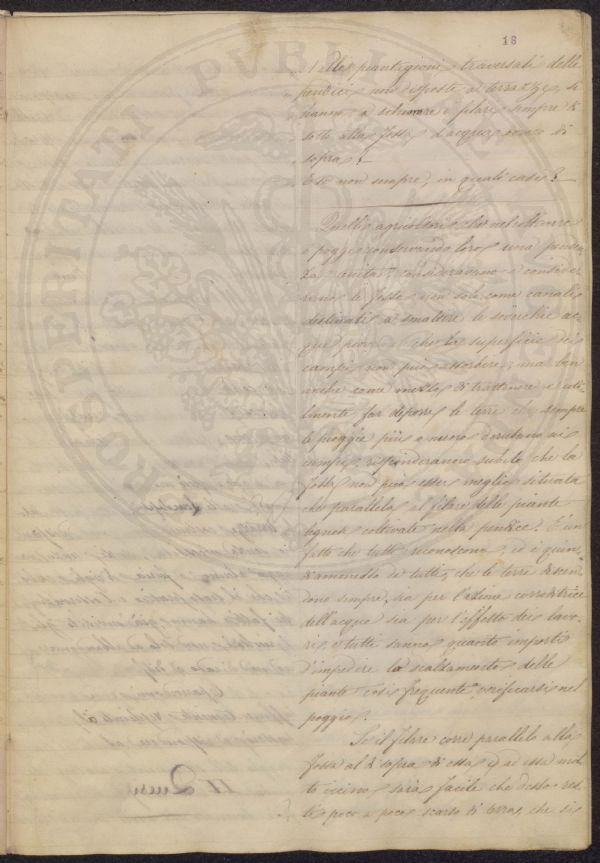 18
Nelle piantagioni traversali delle
pendici non disposte a terrazze, si
hanno a situare i filari sempre di
sotto alla fossa d'acqua, ovvero di
sopra?
E se non sempre, in quali casi?
Quelli agricoltori che nel coltivare
i poggi conservando loro una penden
za unita, consideravano e consider
eranno le fosse non solo come canali
destinati a smaltire le soverchie ac
que piovane che la superficie dei
campi non può assorbire, ma ben
anche come mezzo di trattenere e util
mente far deporre le terre che sempre
le pioggie più o meno derubano ai
campi, risponderanno subito che la
fossa non può esser meglio situata
che parallela al filare delle piante
legnose coltivate nella pendice. È un
fatto che tutti riconoscono, ed è quin
di ammesso da tutti, che le terre discen
dono sempre, sia per l'azione corroditrice
dell'acque sia per l'effetto dei lavo
ri, e tutti sanno quanto importi
d'impedire lo scalzamento delle
piante così frequente a verificarsi nel
poggio.
Se il filare corre parallelo alla
fossa al di sopra di essa, e ad essa mol
to vicino sarà facile che desso res
ti poco a poco scarso di terra, che sì
PROSPERITATI PVBLI